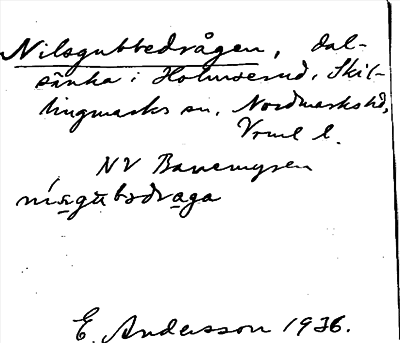 Nilsgubbedrågen, dal-
sänka i Holmserud, Skil-
lingmarks sn, Nordmarks hd,
Vrml l.
NV Banemyren
E. Andersson 1936.